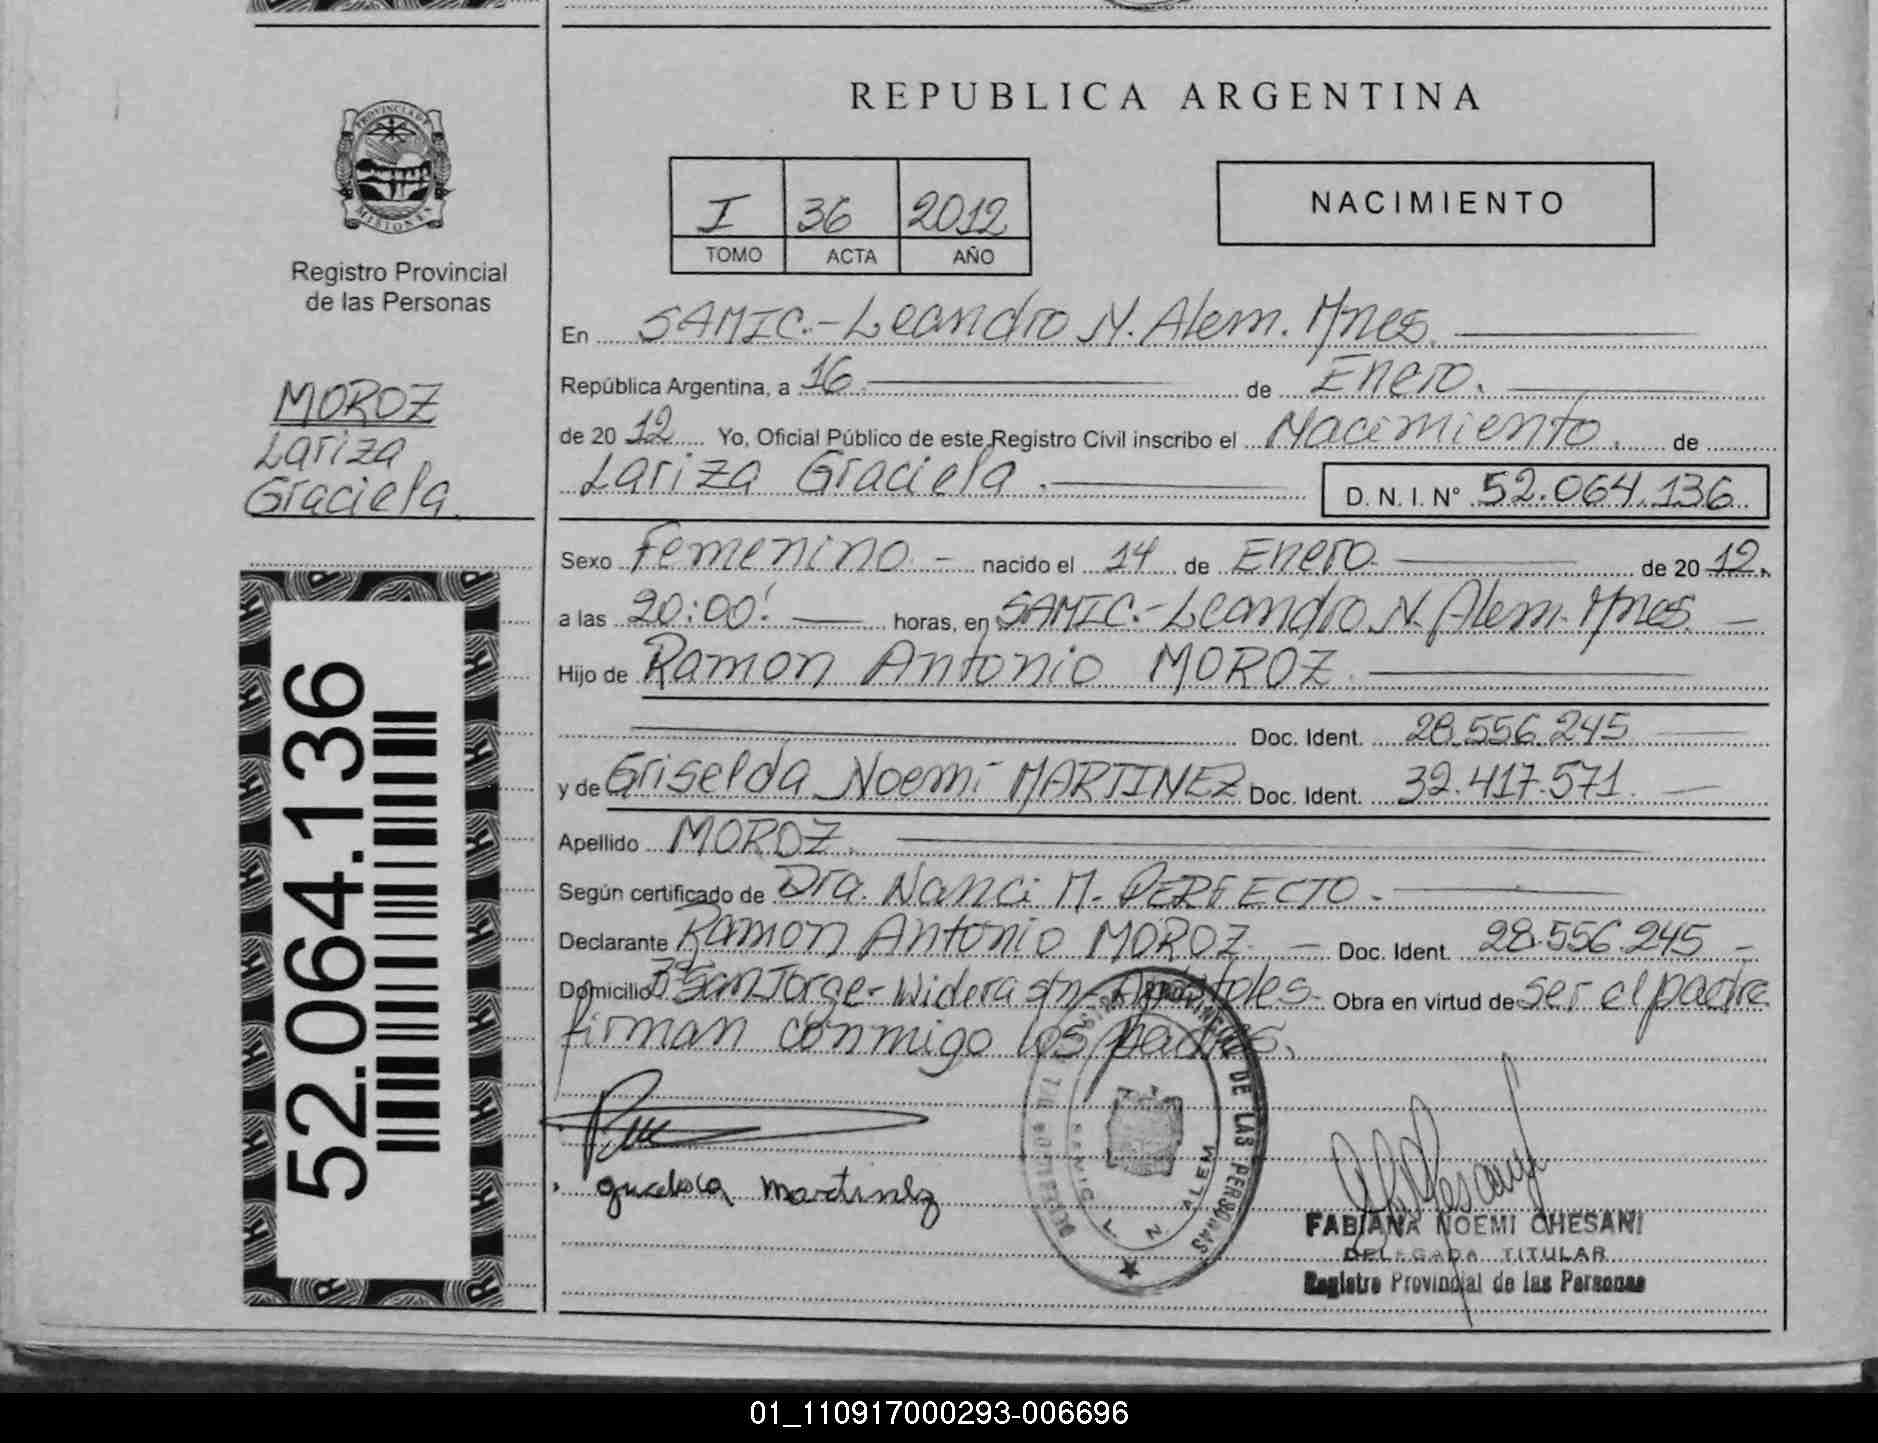 REPUBLICA ARGENTINA
PROVINCIA DE
MISIONES
Registro Provincial
de las Personas
I 36 2012
TOMO ACTA AÑO
NACIMIENTO
MOROZ
Lariza
Graciela.
52.064.136
En SAMIC.-Leandro N. Alem. Mnes.
República Argentina, a 16. de Enero.
de 20 12 Yo, Oficial Público de este Registro Civil inscribo el Nacimiento. de
Lariza Graciela.
D. N. I. Nº 52.064.136
Sexo Femenino - nacido el 14 de Enero de 20 12.
a las 20:00' horas, en SAMIC.-Leandro N. Alem. Mnes.
Hijo de Ramon Antonio MOROZ.
Doc. Ident. 28.556.245
y de Griselda Noemi MARTINEZ Doc. Ident. 32.417.571
Apellido MOROZ.
Según certificado de Dra. Nanci M. PERFECTO.-
Declarante Ramon Antonio MOROZ. - Doc. Ident. 28.556.245 -
Domicilio Bº San Jorge-Widera s/n-Apóstoles- Obra en virtud de ser el padre
firman conmigo los padres.
DE LAS PERSONAS
SAMIC L N ALEM
Martinez
FABIANA NOEMI CHESANI
DELEGADA TITULAR
Registro Provincial de las Personas
01_110917000293-006696